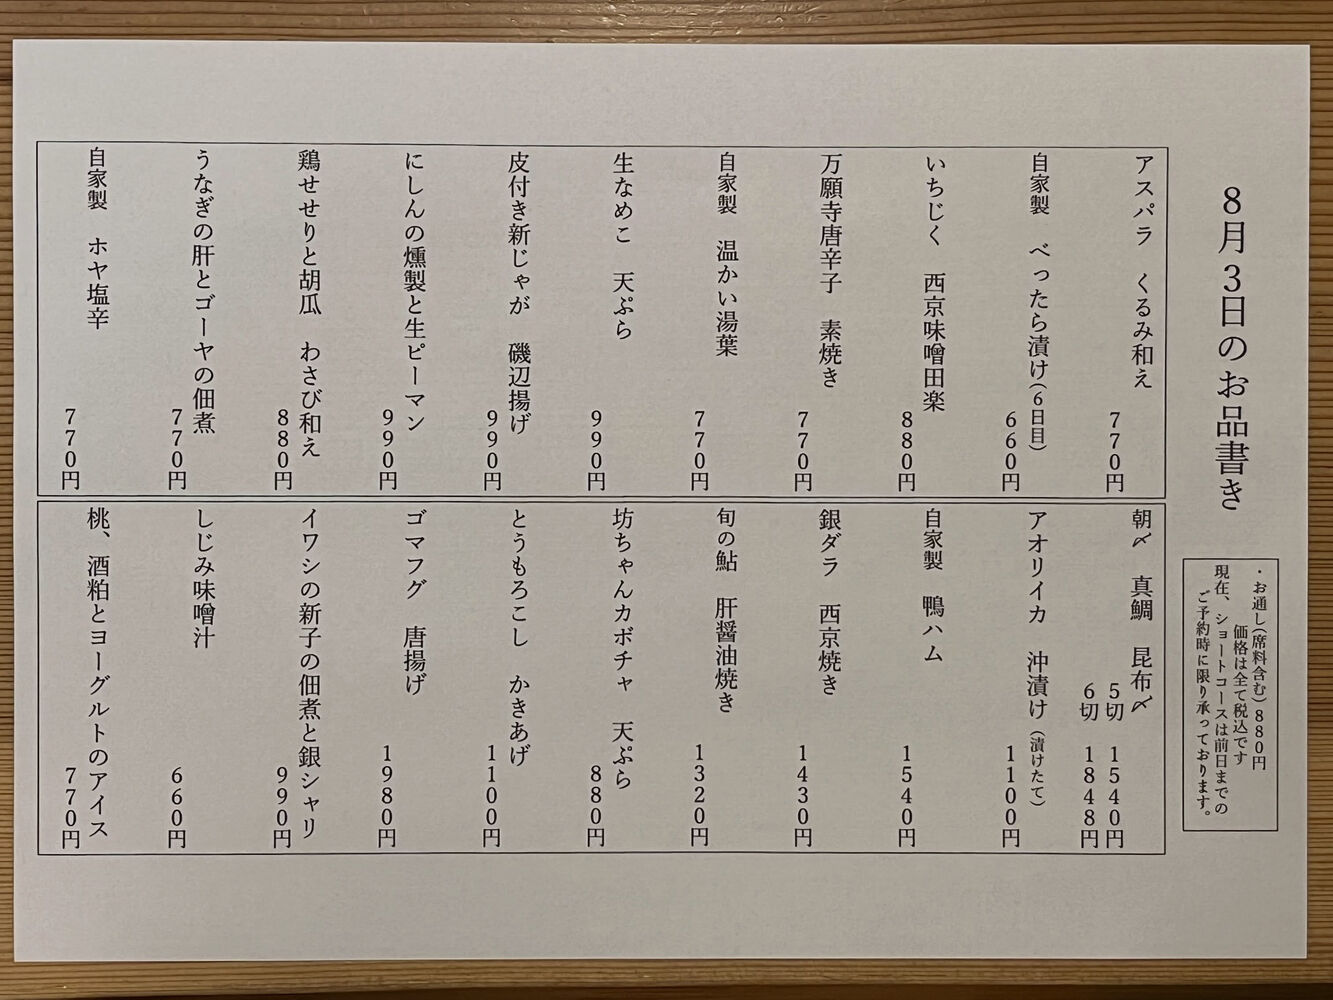 8月3日のお品書き
・お通し(席料含む)880円
価格は全て税込です
現在、ショートコースは前日までの
ご予約時に限り承っております。
アスパラ　くるみ和え
770円
自家製　べったら漬け(6日目)
660円
いちじく　西京味噌田楽
880円
万願寺唐辛子　素焼き
770円
自家製　温かい湯葉
770円
生なめこ　天ぷら
990円
皮付き新じゃが　磯辺揚げ
990円
にしんの燻製と生ピーマン
990円
鶏せせりと胡瓜　わさび和え
880円
うなぎの肝とゴーヤの佃煮
770円
自家製　ホヤ塩辛
770円
朝〆　真鯛　昆布〆
5切　1540円
6切　1848円
アオリイカ　沖漬け(漬けたて)
1100円
自家製　鴨ハム
1540円
銀ダラ　西京焼き
1430円
旬の鮎　肝醤油焼き
1320円
坊ちゃんカボチャ　天ぷら
880円
とうもろこし　かきあげ
1100円
ゴマフグ　唐揚げ
1980円
イワシの新子の佃煮と銀シャリ
990円
しじみ味噌汁
660円
桃、酒粕とヨーグルトのアイス
770円